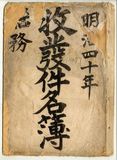 明治四十年
收發件名簿
庶務